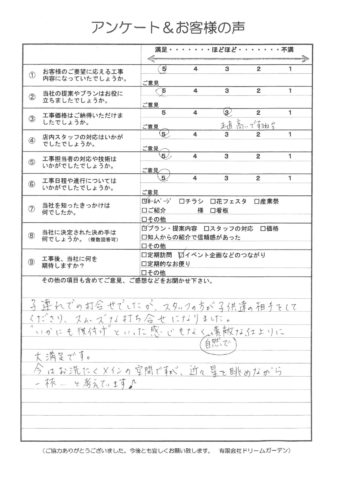 アンケート＆お客様の声
満足・・・・・・・ほどほど・・・・・・・不満
① お客様のご要望に応える工事内容になっていたでしょうか。 5 4 3 2 1
ご意見
② 当社の提案やプランはお役に立ちましたでしょうか。 5 4 3 2 1
ご意見
③ 工事価格はご納得いただけましたでしょうか。 5 4 3 2 1
ご意見
④ 店内スタッフの対応はいかがでしたでしょうか。 5 4 3 2 1
ご意見
⑤ 工事担当者の対応や技術はいかがでしたでしょうか。 5 4 3 2 1
ご意見
⑥ 工事日程や進行についてはいかがでしたでしょうか。 5 4 3 2 1
ご意見
⑦ 当社を知ったきっかけは何でしたか。 ☑ホームページ □チラシ □花フェスタ □産業祭
□ご紹介 様 □看板
□その他
⑧ 当社に決定された決め手は何でしょうか。（複数回答可） ☑プラン・提案内容 □スタッフの対応 □価格
□知人からの紹介で信頼感があった
□その他
⑨ 工事後、当社に何を期待しますか？ □定期訪問 ☑イベント企画などのつながり
□定期的なお便り
□その他
その他の項目も含めてご意見、ご感想などをお聞かせ下さい。
子連れでの打合せでしたが、スタッフの方が子供達の相手をして
くださり、スムーズな打ち合せになりました。
"いかにも後付け"といった感じもなく、素敵な仕上りに
自然で
大満足です。
今はお洗たくメインの空間ですが、近々星を眺めながら
一杯… と考えています♪
（ご協力ありがとうございました。今後とも宜しくお願い致します。 有限会社ドリームガーデン）